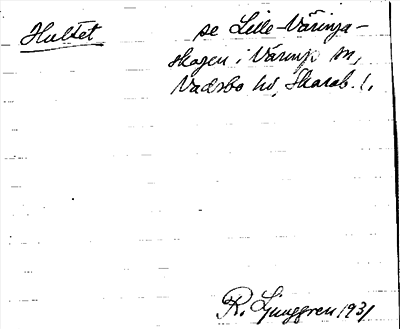 Hultet
se Lille-Väringa-
skogen i Värings sn,
Vadsbo hd, Skarab. l.
R. Ljunggren 1931